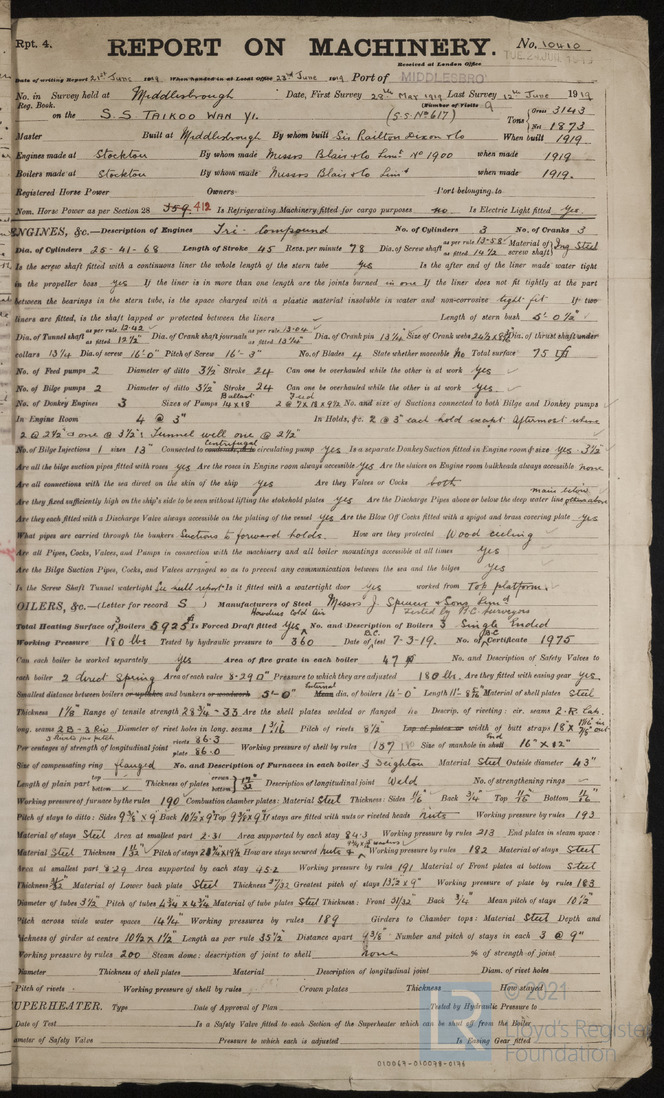 Rpt. 4.
REPORT ON MACHINERY.
No. 10410
Received at London Office
TUE. 24 JUN. 1919
Date of writing Report 21st June 1919 When handed in at Local Office 23rd June 1919 Port of MIDDLESBRO'
No. in Survey held at Middlesbrough Date, First Survey 28th Mar 1919 Last Survey 12th June 1919
Reg. Book. (Number of Visits 9
on the S.S TAIKOO WAN YI. (S.S. No 617) Tons Gross 3143 Net 1873
Master Built at Middlesbrough By whom built Sir Railton Dixon & Co When built 1919
Engines made at Stockton By whom made Messrs Blair & Co Limd No 1900 when made 1919
Boilers made at Stockton By whom made Messrs Blair & Co Limd when made 1919.
Registered Horse Power Owners Port belonging to
Nom. Horse Power as per Section 28 359. 412 Is Refrigerating Machinery fitted for cargo purposes no. Is Electric Light fitted Yes.
ENGINES, &c.—Description of Engines Tri-Compound No. of Cylinders 3 No. of Cranks 3
Dia. of Cylinders 25-41-68 Length of Stroke 45 Revs. per minute 78 Dia. of Screw shaft as per rule 13.58 as fitted 14 1/2 Material of screw shaft Ing Steel
Is the screw shaft fitted with a continuous liner the whole length of the stern tube yes Is the after end of the liner made water tight
in the propeller boss yes If the liner is in more than one length are the joints burned in one If the liner does not fit tightly at the part
between the bearings in the stern tube, is the space charged with a plastic material insoluble in water and non-corrosive tight fit If two
liners are fitted, is the shaft lapped or protected between the liners Length of stern bush 5'-0 1/2"
Dia. of Tunnel shaft as per rule 12.42 as fitted 12 1/2" Dia. of Crank shaft journals as per rule 13.04 as fitted 13 1/4" Dia. of Crank pin 13 1/4 Size of Crank webs 24 1/2 x 8 1/2 Dia. of thrust shaft under
collars 13 1/4 Dia. of screw 16'-0" Pitch of Screw 16'-3" No. of Blades 4 State whether moveable No Total surface 75
No. of Feed pumps 2 Diameter of ditto 3 1/2 Stroke 24 Can one be overhauled while the other is at work yes
No. of Bilge pumps 2 Diameter of ditto 3 1/2" Stroke 24 Can one be overhauled while the other is at work yes.
No. of Donkey Engines 3 Sizes of Pumps Ballast 14x18 Feed 2 @ 7 x 18 No. and size of Suctions connected to both Bilge and Donkey pumps
In Engine Room 4 @ 3" In Holds, &c. 2 @ 3" each hold except Aftermost where
2 @ 2 1/2" & one @ 3 1/2": Tunnel well one @ 2 1/2"
No. of Bilge Injections 1 sizes 13" Connected to centrifugal circulating pump yes Is a separate Donkey Suction fitted in Engine room & size yes 3 1/2"
Are all the bilge suction pipes fitted with roses yes Are the roses in Engine room always accessible yes Are the sluices on Engine room bulkheads always accessible none
Are all connections with the sea direct on the skin of the ship yes Are they Valves or Cocks both
Are they fixed sufficiently high on the ship's side to be seen without lifting the stokehold plates yes Are the Discharge Pipes above or below the deep water line main below others above
Are they each fitted with a Discharge Valve always accessible on the plating of the vessel yes Are the Blow Off Cocks fitted with a spigot and brass covering plate yes
What pipes are carried through the bunkers Suctions to forward holds. How are they protected Wood ceiling
Are all Pipes, Cocks, Valves, and Pumps in connection with the machinery and all boiler mountings accessible at all times yes
Are the Bilge Suction Pipes, Cocks, and Valves arranged so as to prevent any communication between the sea and the bilges yes
Is the Screw Shaft Tunnel watertight See hull report Is it fitted with a watertight door yes worked from Top platform.
OILERS, &c.—(Letter for record S) Manufacturers of Steel Messrs J. Spencer & Sons Limd
Howdens Cold Air Tested by B.C. Surveyors
Total Heating Surface of Boilers 5925 Is Forced Draft fitted Yes No. and Description of Boilers 3 Single Ended
Working Pressure 180 lbs Tested by hydraulic pressure to 360 Date of B.C. test 7-3-19. No. of B.C. Certificate 1975
Can each boiler be worked separately yes Area of fire grate in each boiler 47 No. and Description of Safety Valves to
each boiler 2 direct Spring Area of each valve 8.29 Pressure to which they are adjusted 180 lbs. Are they fitted with easing gear yes.
Smallest distance between boilers or uptakes and bunkers or woodwork 5'-0" External dia. of boilers 14'-0" Length 11'-8 7/16 Material of shell plates Steel
Thickness 1 1/8" Range of tensile strength 28 3/4-33 Are the shell plates welded or flanged no Descrip. of riveting: cir. seams 2-R Lap.
long. seams 2B-3 Riv Diameter of rivet holes in long. seams 1 3/16 Pitch of rivets 8 1/2 Lap of plates or width of butt straps 18 x
Per centages of strength of longitudinal joint rivets 86.3 plate 86.0 Working pressure of shell by rules 187 180 Size of manhole in end shell 16" x 12"
Size of compensating ring flanged No. and Description of Furnaces in each boiler 3 Deighton Material Steel Outside diameter 43"
Length of plain part top bottom Thickness of plates crown bottom 17/32 Description of longitudinal joint Weld No. of strengthening rings
Working pressure of furnace by the rules 190 Combustion chamber plates: Material Steel Thickness: Sides Back 3/4" Top 11/16 Bottom
Pitch of stays to ditto: Sides 9 3/8" x 9 Back 10 1/2 x 9" Top 9 3/8 x 9" If stays are fitted with nuts or riveted heads nuts Working pressure by rules 193
Material of stays Steel Area at smallest part 2.31 Area supported by each stay 84.3 Working pressure by rules 213 End plates in steam space:
Material Steel Thickness 1 3/32" Pitch of stays 23 3/4 x 19 1/2 How are stays secured nuts & washers Working pressure by rules 182 Material of stays Steel
Area at smallest part 8.29 Area supported by each stay 452 Working pressure by rules 191 Material of Front plates at bottom Steel
Thickness Material of Lower back plate Steel Thickness 27/32 Greatest pitch of stays 13 1/2 x 9" Working pressure of plate by rules 183
Diameter of tubes 3 1/2 Pitch of tubes 4 3/4 x 4 3/4 Material of tube plates Steel Thickness: Front 31/32 Back 3/4" Mean pitch of stays 10 1/2"
Pitch across wide water spaces 14 1/4" Working pressures by rules 189 Girders to Chamber tops: Material Steel Depth and
thickness of girder at centre 10 1/2 x 1 1/2" Length as per rule 35 1/2" Distance apart 9 3/8" Number and pitch of stays in each 3 @ 9"
Working pressure by rules 200 Steam dome: description of joint to shell none % of strength of joint
Diameter Thickness of shell plates Material Description of longitudinal joint Diam. of rivet holes
Pitch of rivets Working pressure of shell by rules Crown plates Thickness How stayed
UPERHEATER. Type Date of Approval of Plan Tested by Hydraulic Pressure to
Date of Test Is a Safety Valve fitted to each Section of the Superheater which can be shut off from the Boiler
ameter of Safety Valve Pressure to which each is adjusted Is Easing Gear fitted
© 2021
Lloyd's Register
Foundation
010067-010078-0176